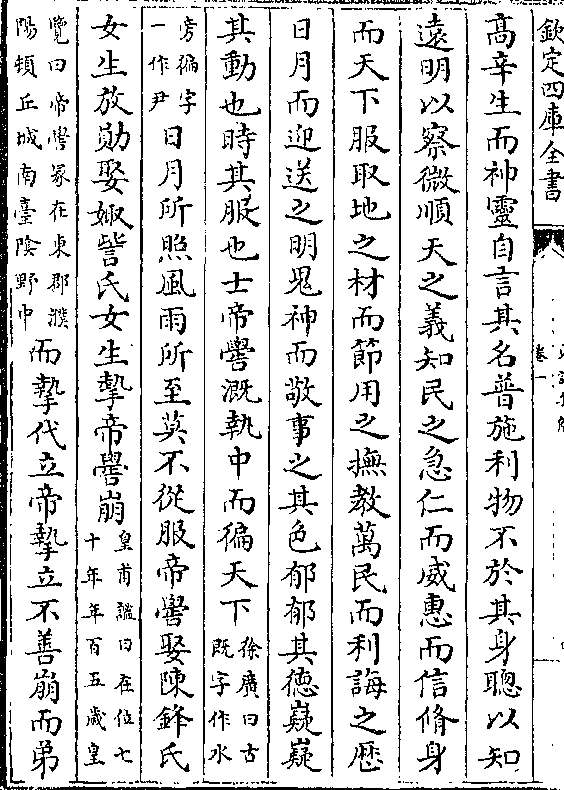 欽定四庫全書
卷一
髙辛生而神靈自言其名普施利物不於其身聰以知
逺明以察微順天之義知民之急仁而威惠而信脩身
而天下服取地之材而節用之撫教萬民而利誨之厯
日月而迎送之明鬼神而敬事之其色郁郁其徳嶷嶷
其動也時其服也士帝嚳溉執中而徧天下徐廣曰古既字作水
旁徧字一作尹日月所照風雨所至莫不從服帝嚳娶陳鋒氏
女生放勛娶娵訾氏女生摯帝嚳崩皇甫謐曰在位七十年年百五歲皇
覽曰帝嚳冢在東郡濮陽頓丘城南臺隂野中而摯代立帝摯立不善崩而弟